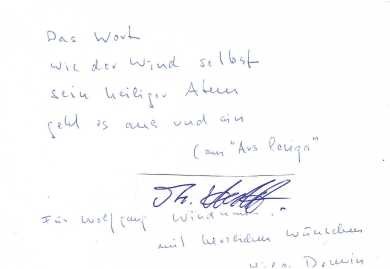 Das Wort
wie der Wind selbst
sein heiliger Atem
geht es aus und ein
(aus "Ars longa"
Th.
Für Wolfgang
mit herzlichen Wünschen
Hilde Domin